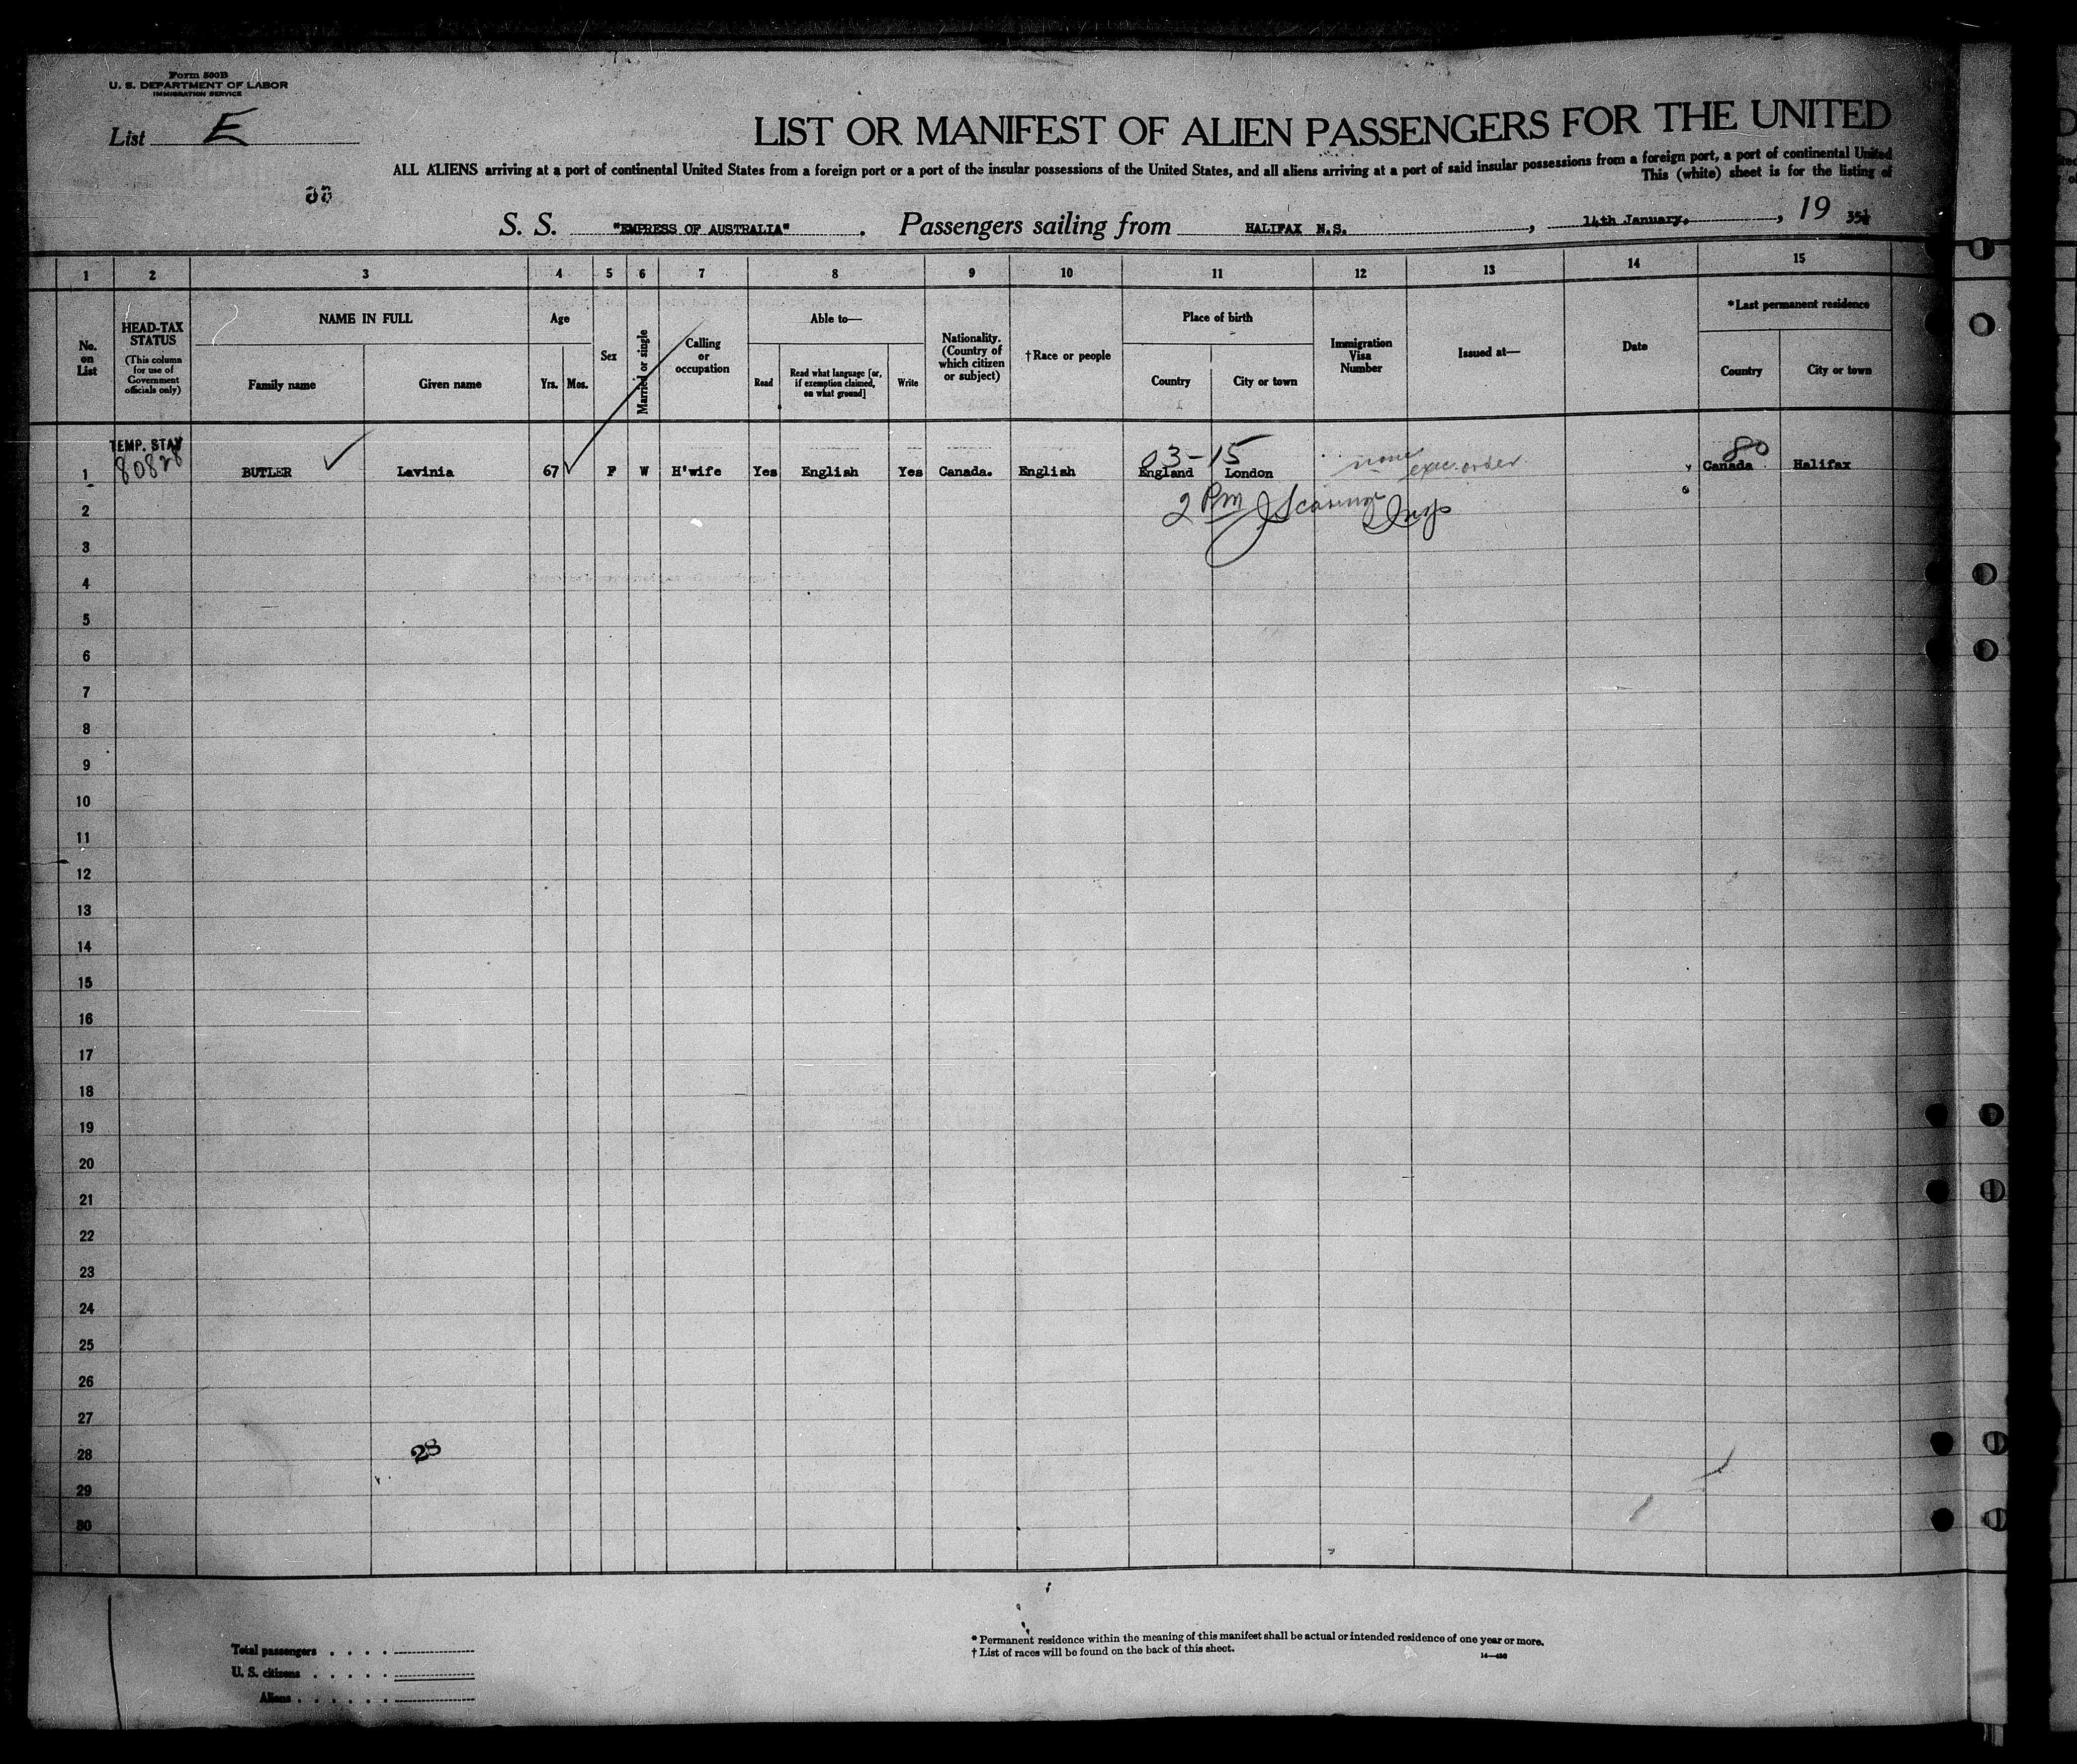 Form 500B
U. S. DEPARTMENT OF LABOR
IMMIGRATION SERVICE
List E
LIST OR MANIFEST OF ALIEN PASSENGERS FOR THE UNITED
ALL ALIENS arriving at a port of continental United States from a foreign port or a port of the insular possessions of the United States, and all aliens arriving at a port of said insular possessions from a foreign port, a port of continental United
This (white) sheet is for the listing of
S. S. "EMPRESS OF AUSTRALIA" . Passengers sailing from HALIFAX N.S. , 14th January. , 19 35
1 2 3 4 5 6 7 8 9 10 11 12 13 14 15
No. on List
HEAD-TAX STATUS
(This column for use of Government officials only)
NAME IN FULL
Family name
Given name
Age
Yrs.
Mos.
Sex
Married or single
Calling or occupation
Able to—
Read
Read what language [or, if exemption claimed, on what ground]
Write
Nationality. (Country of which citizen or subject)
†Race or people
Place of birth
Country
City or town
Immigration Visa Number
Issued at—
Date
*Last permanent residence
Country
City or town
TEMP. STAY
03-15
none exec. order
80
1 80828 BUTLER Lavinia 67 F W H'wife Yes English Yes Canada. English England London Canada Halifax
2 2 Pm
3
4
5
6
7
8
9
10
11
12
13
14
15
16
17
18
19
20
21
22
23
24
25
26
27
28 28
29
30
Total passengers
U. S. citizens
Aliens
* Permanent residence within the meaning of this manifest shall be actual or intended residence of one year or more.
† List of races will be found on the back of this sheet.